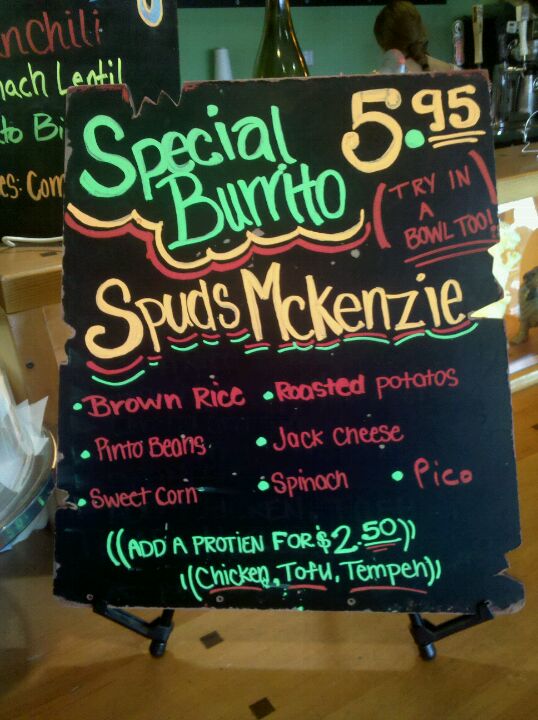 nchili
nach Lentil
to Bi
es: Com
Special
Burrito
5.95
(TRY IN
A
BOWL TOO!)
Spuds McKenzie
• Brown Rice • Roasted potatos
• Pinto Beans • Jack cheese
• Sweet Corn • Spinach • Pico
((ADD A PROTIEN FOR $2.50))
((Chicken, Tofu, Tempeh))